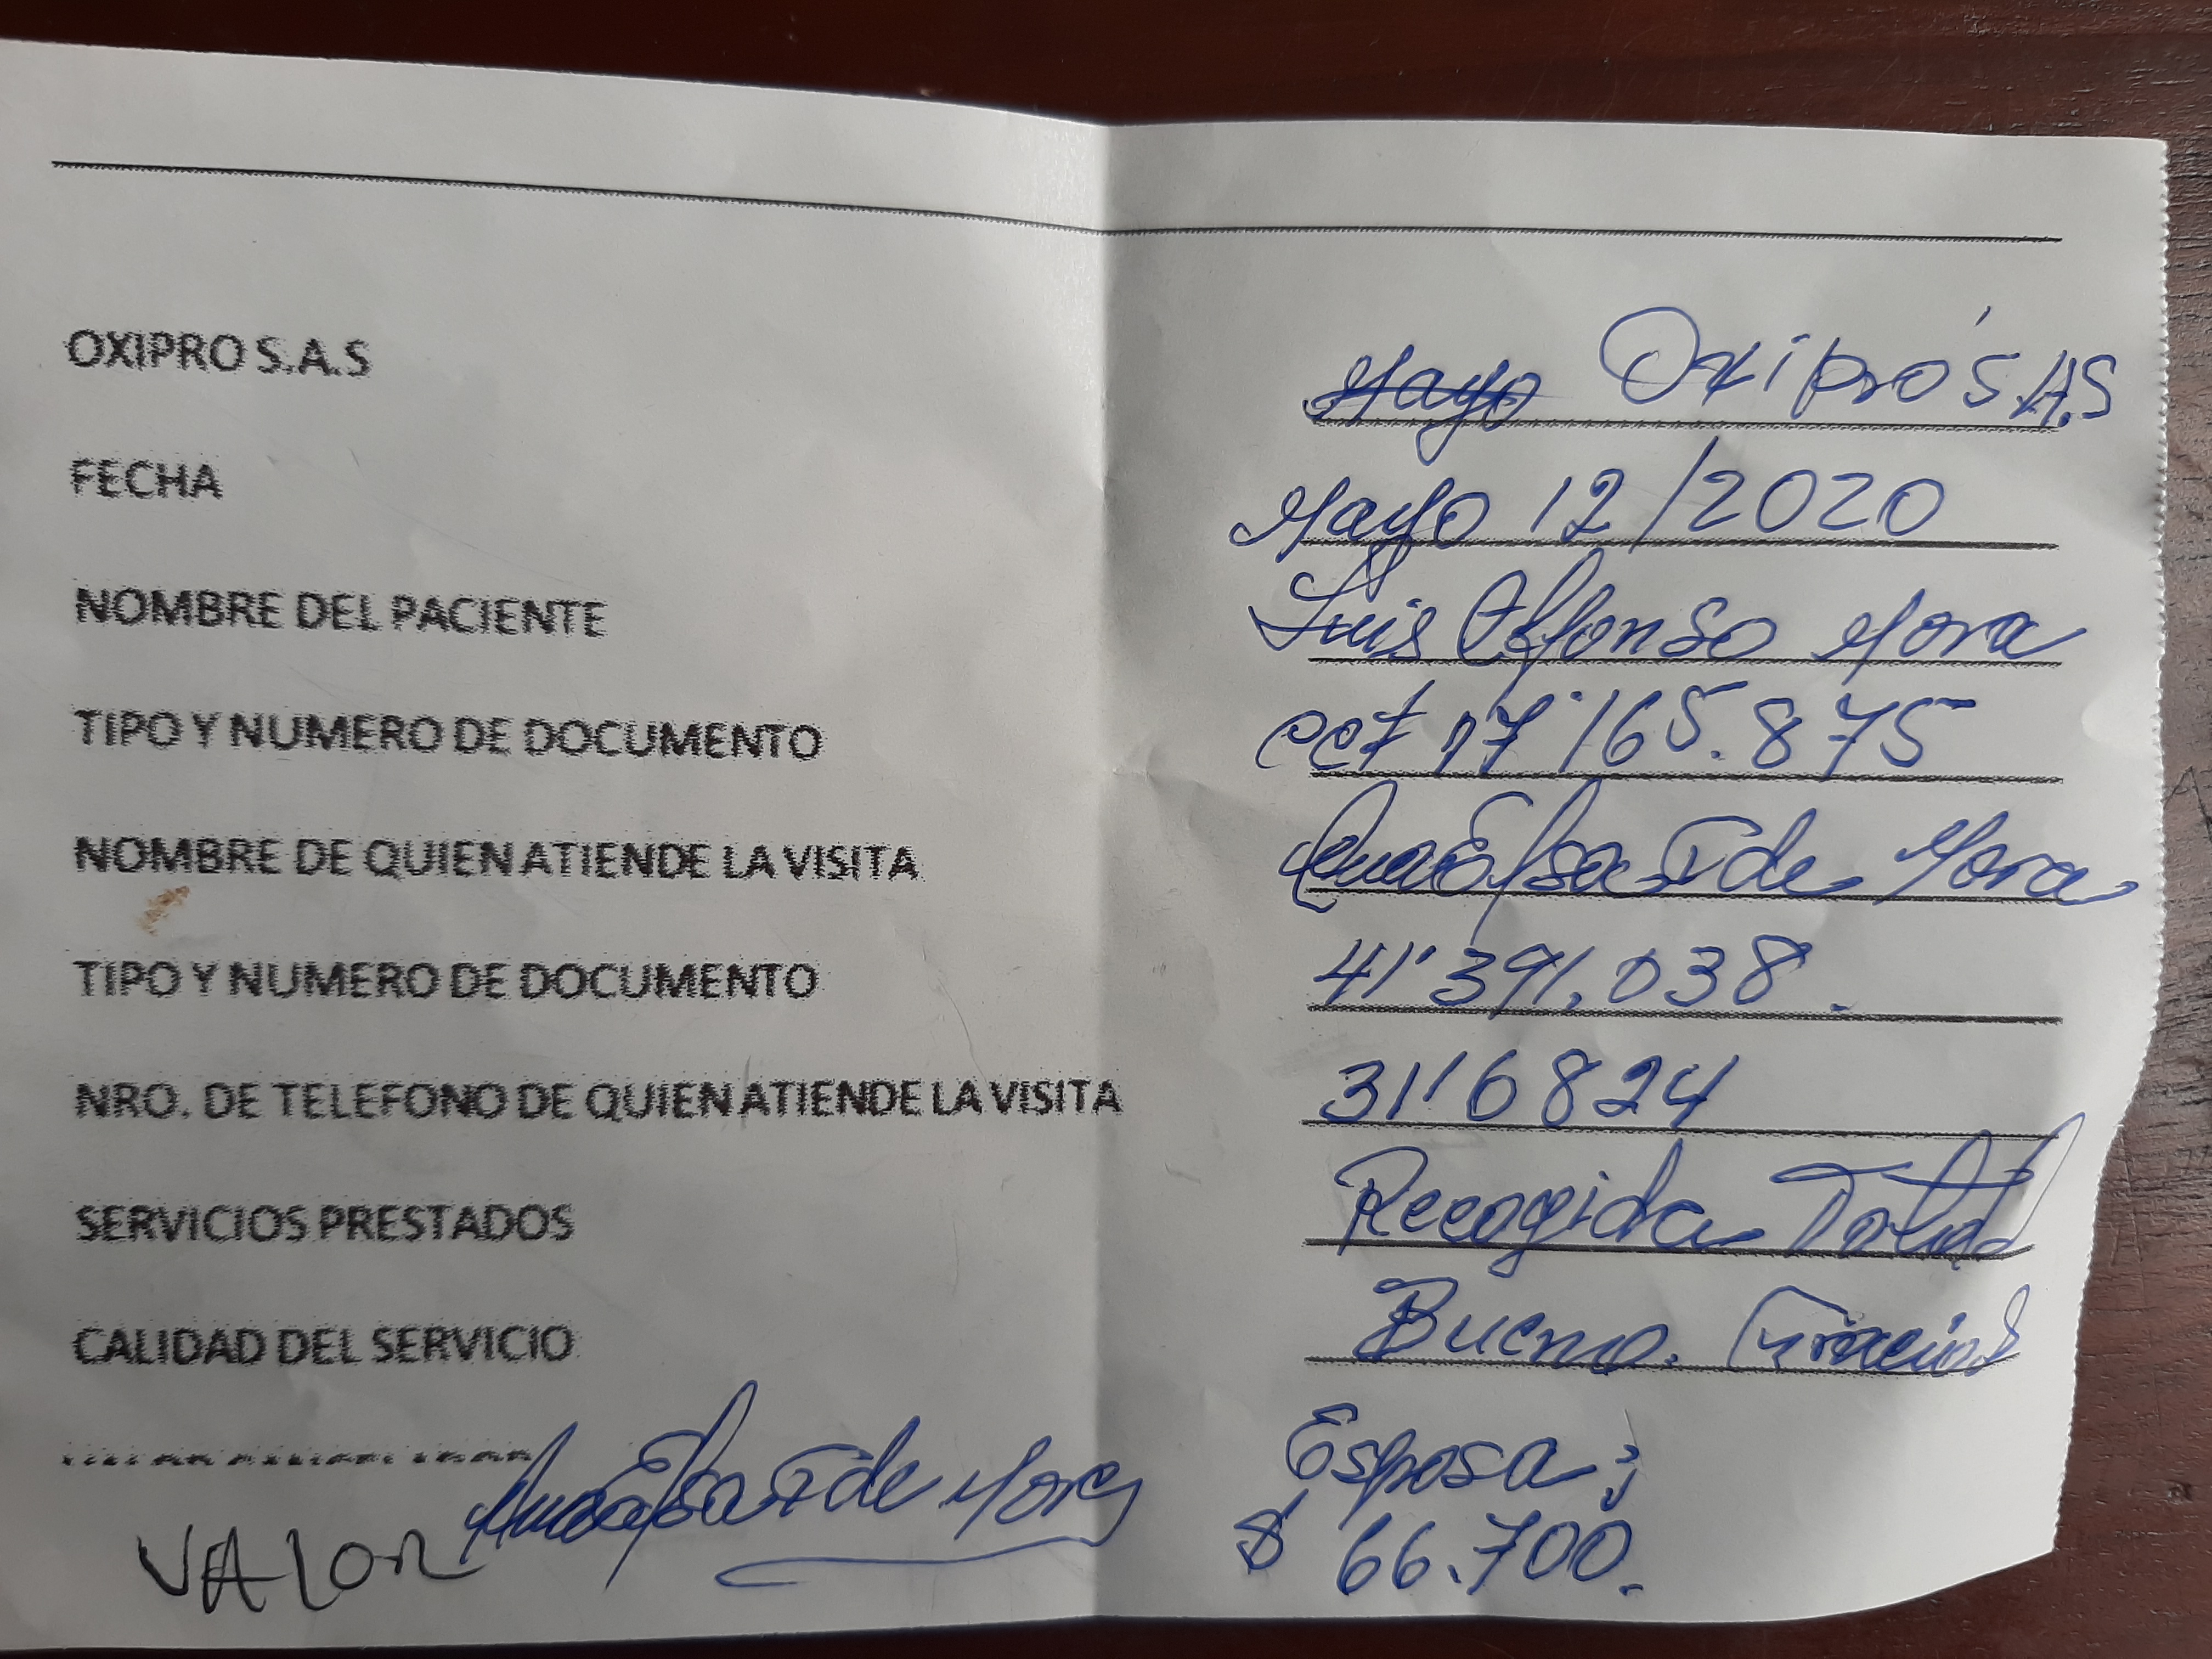 OXIPRO S.A.S Mayo Oxipro S.A.S
FECHA Mayo 12/2020
NOMBRE DEL PACIENTE Luis Alfonso Mora
TIPO Y NUMERO DE DOCUMENTO cc# 17'165.875
NOMBRE DE QUIEN ATIENDE LA VISITA Ana Elsa T de Mora
TIPO Y NUMERO DE DOCUMENTO 41'391.038.
NRO. DE TELEFONO DE QUIEN ATIENDE LA VISITA 31'6824
SERVICIOS PRESTADOS Recogida Total
CALIDAD DEL SERVICIO Bueno. Gracias
Ana Elsa T de Mora Esposa;
VALOR $ 66.700.